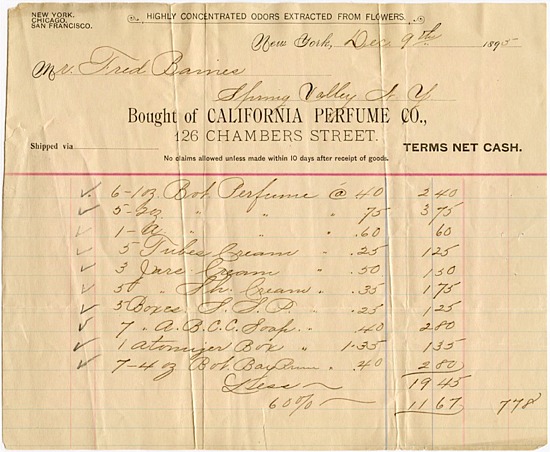 NEW YORK.
CHICAGO.
SAN FRANCISCO.
HIGHLY CONCENTRATED ODORS EXTRACTED FROM FLOWERS.
New York, Dec 9th 1895
Mr. Fred Barnes
Spring Valley N. Y
Bought of CALIFORNIA PERFUME CO.,
126 CHAMBERS STREET.
Shipped via
TERMS NET CASH.
No claims allowed unless made within 10 days after receipt of goods.
6-1oz Bot Perfume @ 40 2 40
5-2oz " " " 75 3 75
1- " " .60 60
5 Tubes Cream - .25 1 25
3 Jars Cream " .50 1 50
5 " Sh. Cream " .35 1 75
5 Boxes S. S. P. " .25 1 25
7 " A.B.C.C. Soap " .40 2 80
1 Atomizer Box " 1.35 1 35
7-4 oz Bot Bay Rum " .40 2 80
Less 19 45
60% 11 67 7 78